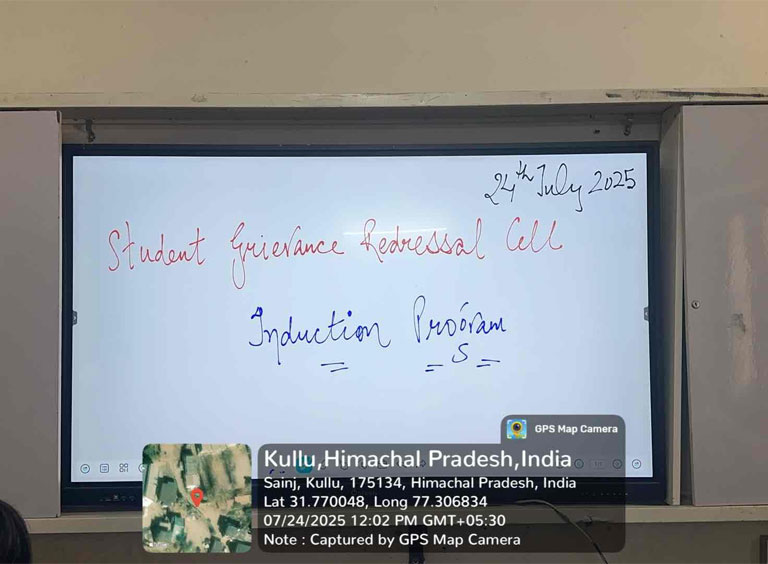 24th July 2025
Student Grievance Redressal Cell
Induction Program
GPS Map Camera
Kullu,Himachal Pradesh,India
Sainj, Kullu, 175134, Himachal Pradesh, India
Lat 31.770048, Long 77.306834
07/24/2025 12:02 PM GMT+05:30
Note : Captured by GPS Map Camera